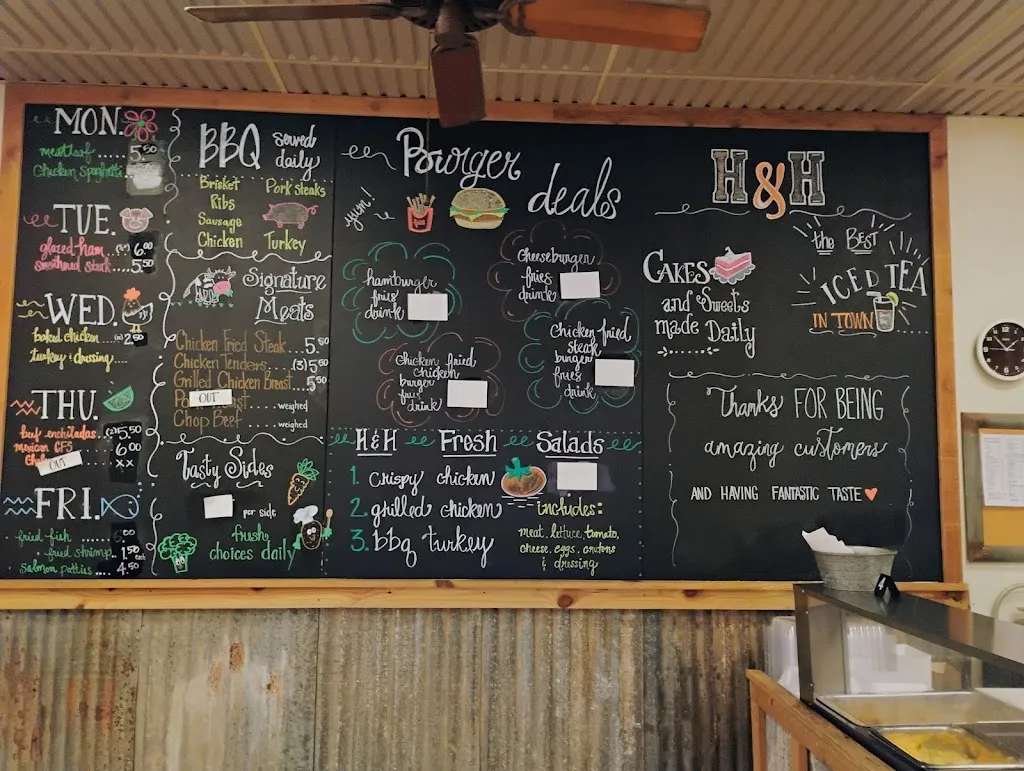 MON.
meatloaf ..... 5.50
Chicken Spaghetti
TUE.
glazed ham (2) 6.00
smothered steak .... 5.50
WED.
baked chicken ... 2.50
turkey & dressing ....
THU.
beef enchiladas (2) 5.50
mexican CFS 6.00
OUT xx
FRI.
fried fish
fried shrimp .. 1.50 each
Salmon patties .... 4.50
BBQ served daily
Brisket
Pork steaks
Ribs
Sausage
Chicken
Turkey
Signature
Meats
Chicken Fried Steak .... 5.50
Chicken Tenders .... (3) 5.50
Grilled Chicken Breast . 5.50
OUT .... weighed
Chop Beef .... weighed
Tasty Sides
per side
fresh
choices daily
Burger
deals
yum!
hamburger
fries
drink
cheeseburger
fries
drink
chicken fried
chicken
burger
fries
drink
chicken fried
steak
burger
fries
drink
H&H Fresh Salads
1. crispy chicken
2. grilled chicken
3. bbq turkey
includes:
meat, lettuce, tomato,
cheese, eggs, onions
& dressing
H&H
the BEST
ICED TEA
IN TOWN
CAKES
and Sweets
made Daily
Thanks FOR BEING
amazing customers
AND HAVING FANTASTIC TASTE
4